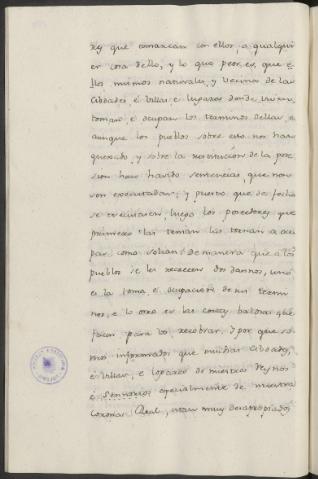 rey que comarcan con ellos, a qualqui
er cosa dello, y lo que peor es, que e
llos mismos naturales, y vecinos de las
Cibdades, é Villas é lugares donde viven
toman é ocupan los terminos dellas, é
aunque los pueblos sobre esto nos han
quexado, y sobre la restitucion de la pose
sion han havido sentencias, que non
son executadas; y puesto que de fecho
se executasen, luego los poseedores que
primero las tenian las tornan a ocu
par como solian: de manera que a los
pueblos se les recrecen dos daños, uno
es la toma é ocupacion de sus termi
nos, é lo otro en las costas baldias que
facen para los recobrar. Y por que so
mos informados que muchas Cibdades,
é Villas, é lugares de nuestros Reynos
é Sennorios especialmente de nuestra
Corona Real, estan muy desapropiados